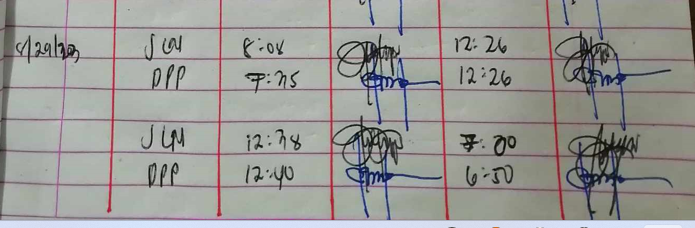 8/29/23 JLM 8:08 12:26
DPP 7:35 12:26
JLM 12:38 7:00
DPP 12:40 6:50